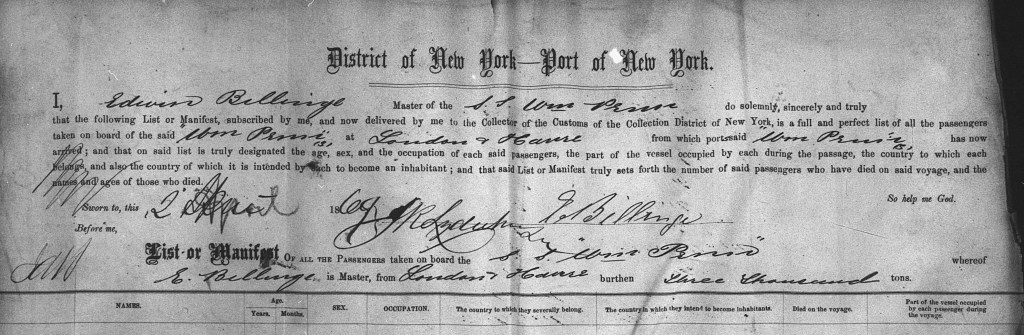 District of New York—Port of New York.
I, Edwin Billinge Master of the S. S. Wm Penn do solemnly, sincerely and truly
that the following List or Manifest, subscribed by me, and now delivered by me to the Collector of the Customs of the Collection District of New York, is a full and perfect list of all the passengers
taken on board of the said Wm Penn at London & Havre from which port said "Wm Penn" has now
arrived; and that on said list is truly designated the age, sex, and the occupation of each said passengers, the part of the vessel occupied by each during the passage, the country to which each
belongs, and also the country of which it is intended by each to become an inhabitant; and that said List or Manifest truly sets forth the number of said passengers who have died on said voyage, and the
names and ages of those who died. So help me God.
Sworn to, this 2 April 1869 E Billinge
Before me,
List or Manifest OF ALL THE PASSENGERS taken on board the S. S. "Wm Penn" whereof
E. Billinge is Master, from London & Havre burthen Three thousand tons.
NAMES. Age. Years. Months. SEX. OCCUPATION. The country to which they severally belong. The country in which they intend to become inhabitants. Died on the voyage. Part of the vessel occupied by each passenger during the voyage.